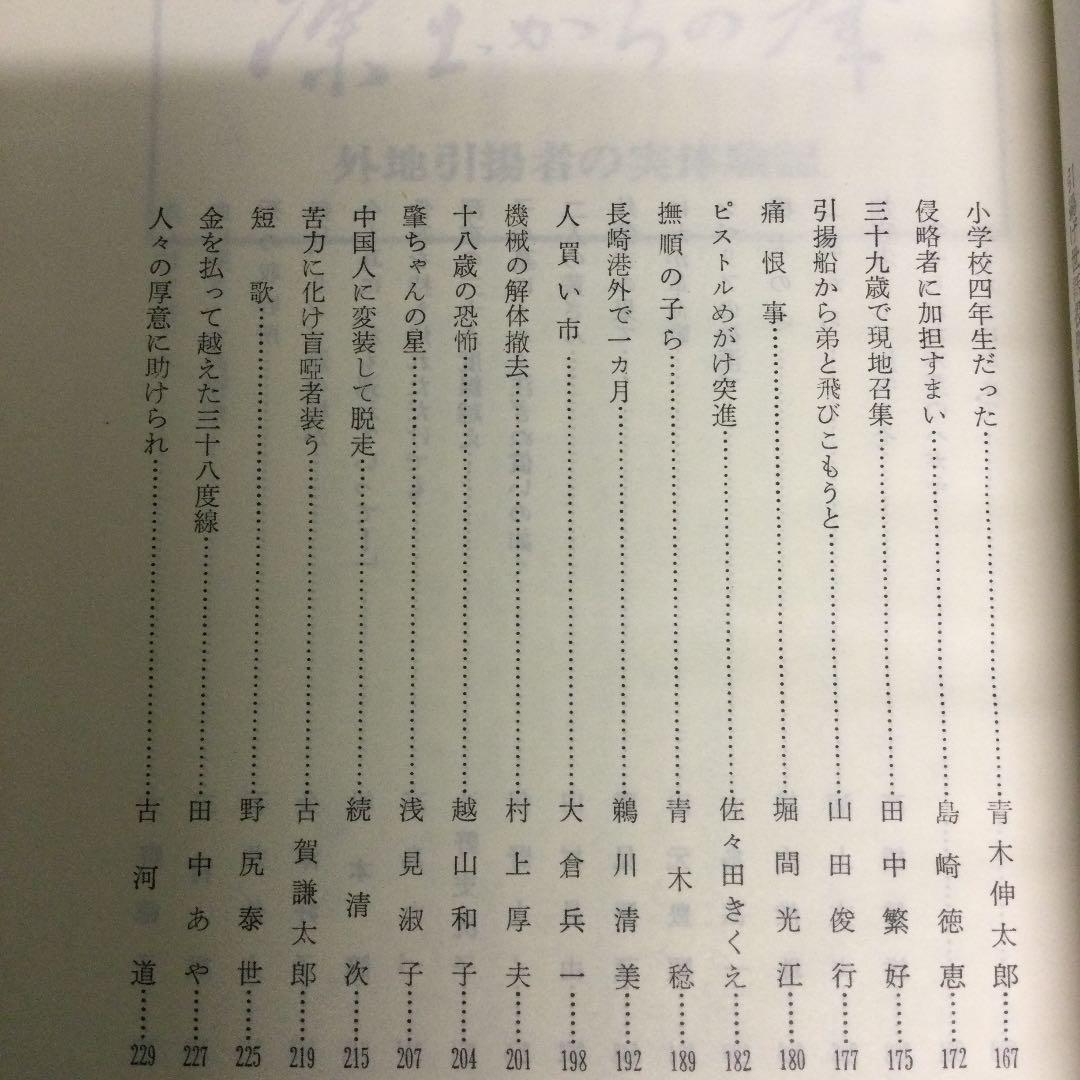 小学校四年生だった……青木伸太郎……167
侵略者に加担すまい……島崎徳恵……172
三十九歳で現地召集……田中繁好……175
引揚船から弟と飛びこもうと……山田俊行……177
痛恨事……堀間光江……180
ピストルめがけ突進……佐々田きくえ……182
撫順の子ら……青木稔……189
長崎港外で一カ月……鵜川清美……192
人買い市……大倉兵一……198
機械の解体撤去……村上厚夫……201
十八歳の恐怖……越山和子……204
肇ちゃんの星……浅見淑子……207
中国人に変装して脱走……続清次……215
苦力に化け盲啞者装う……古賀謙太郎……219
短歌……野尻泰世……225
金を払って越えた三十八度線……田中あや……227
人々の厚意に助けられ……古河道……229
外地引揚者の